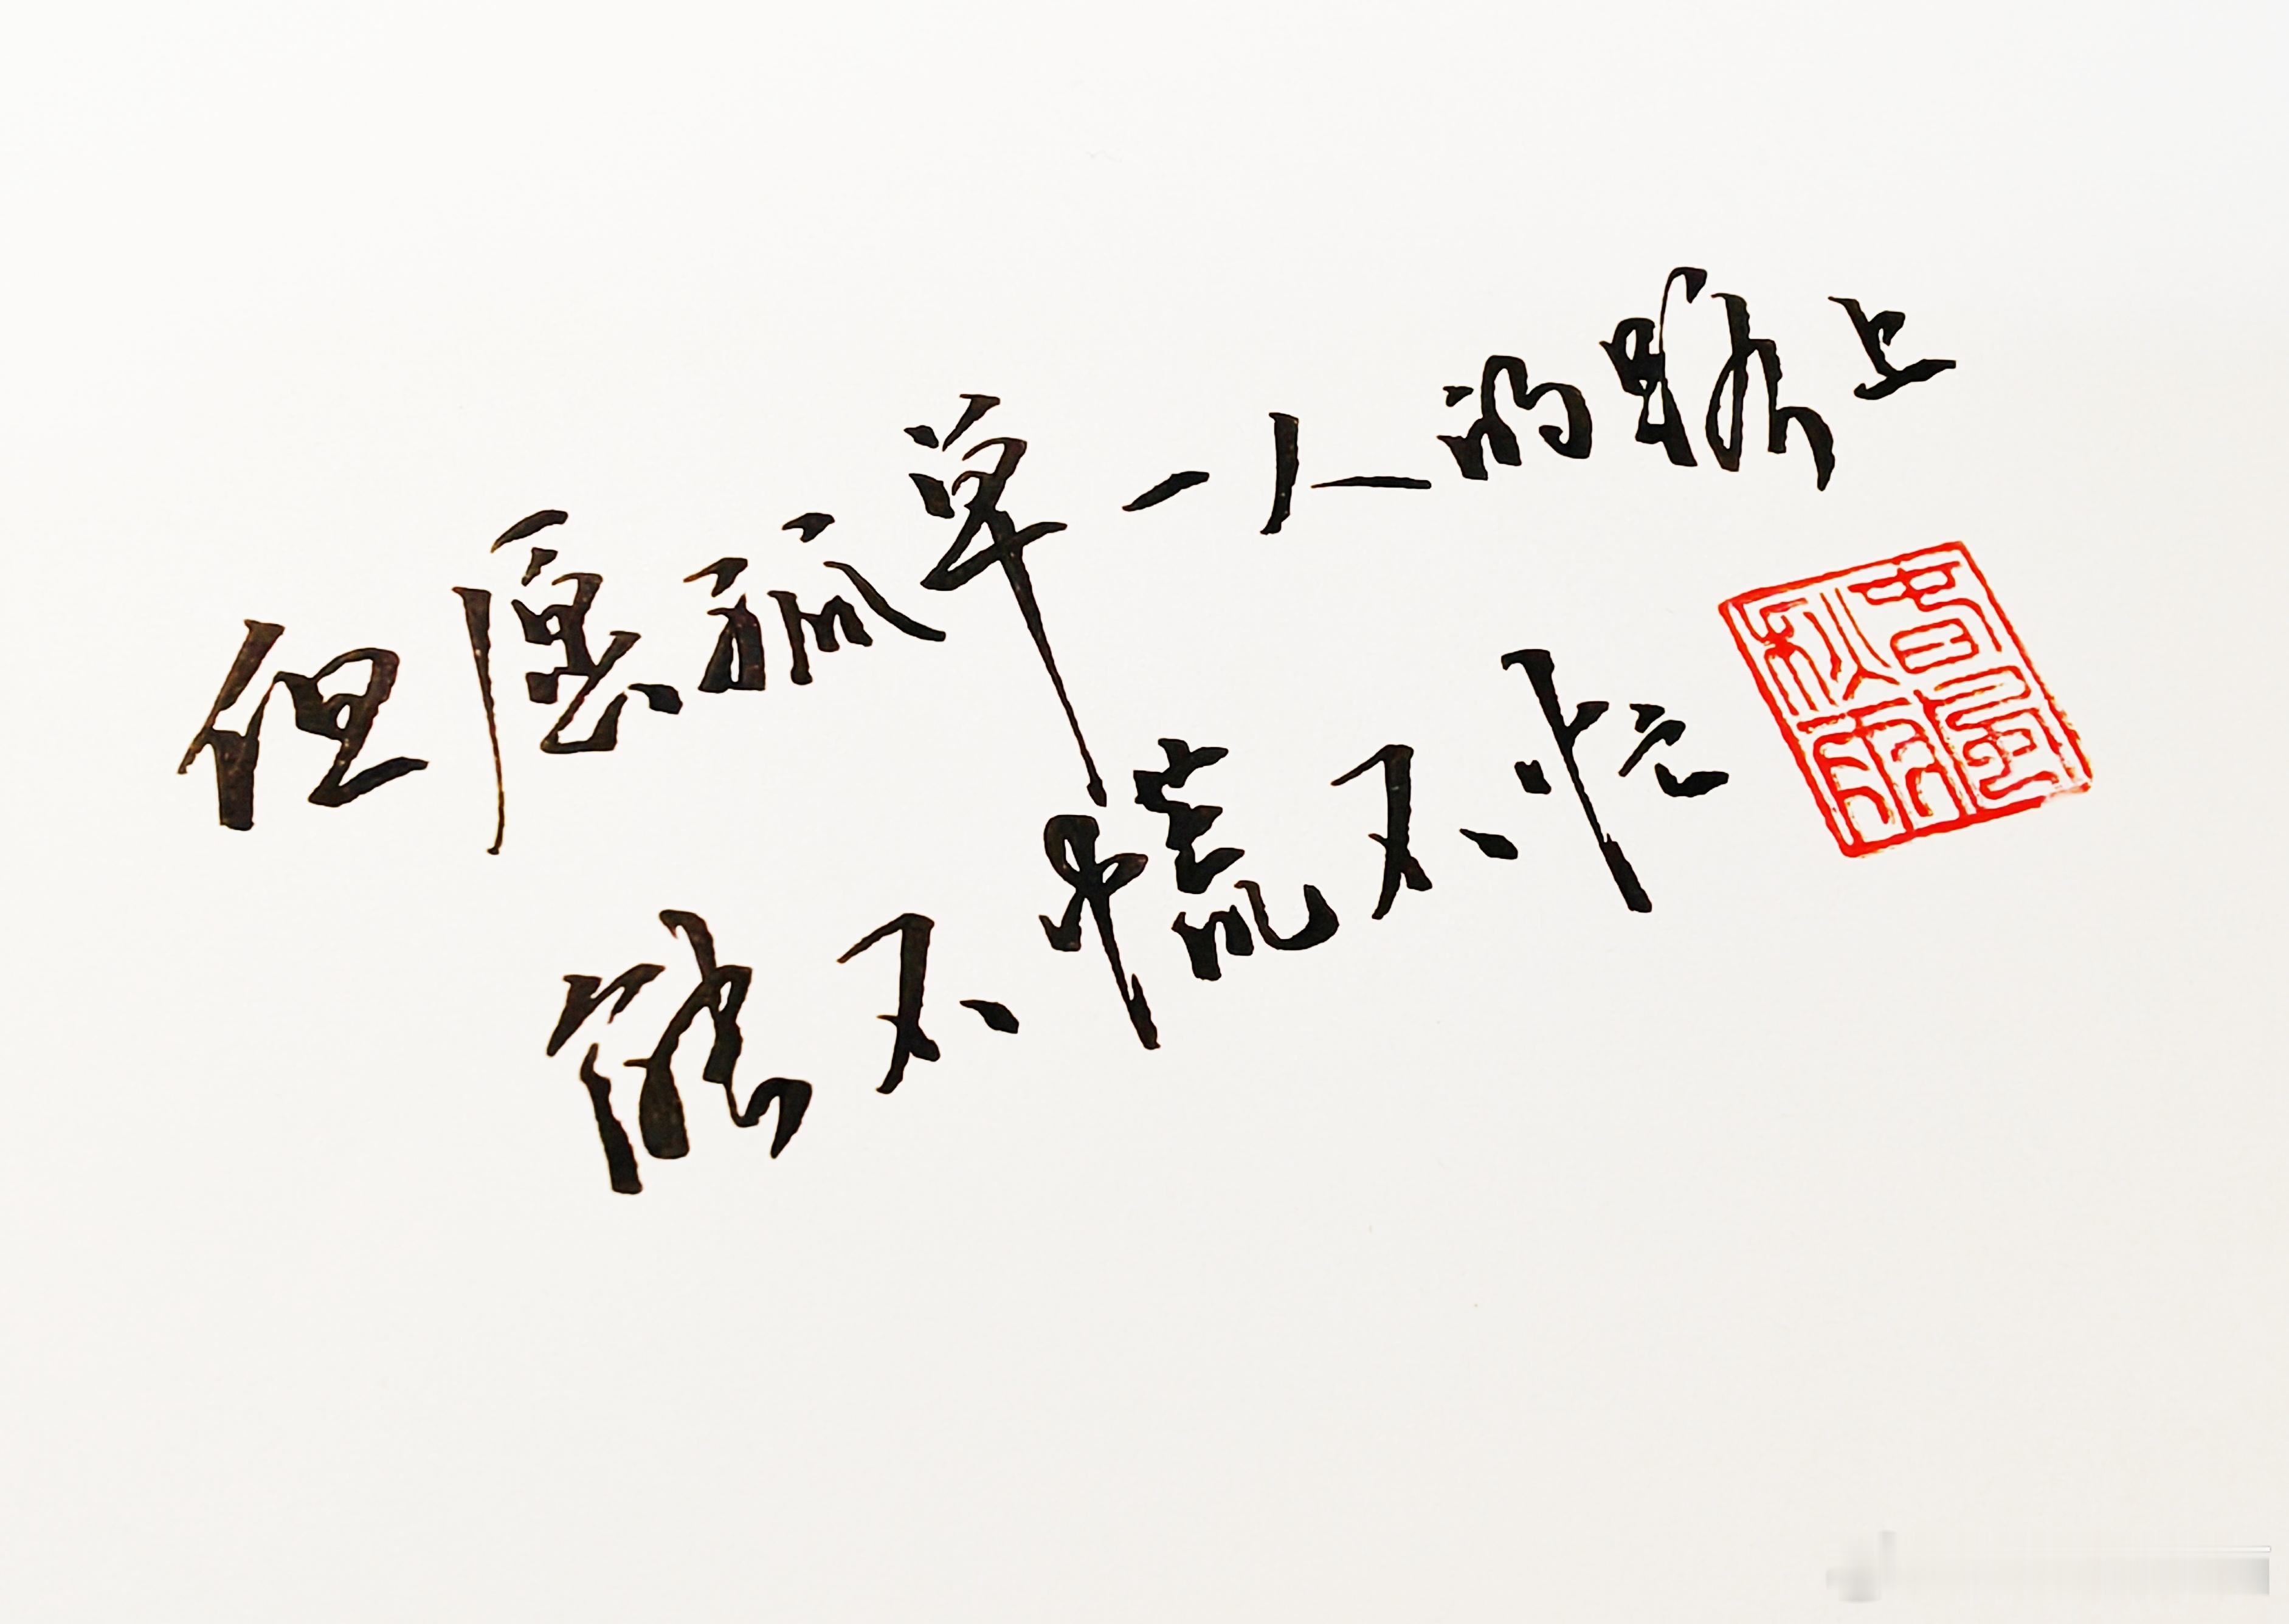 但愿孤单一人的路上
不慌不忙